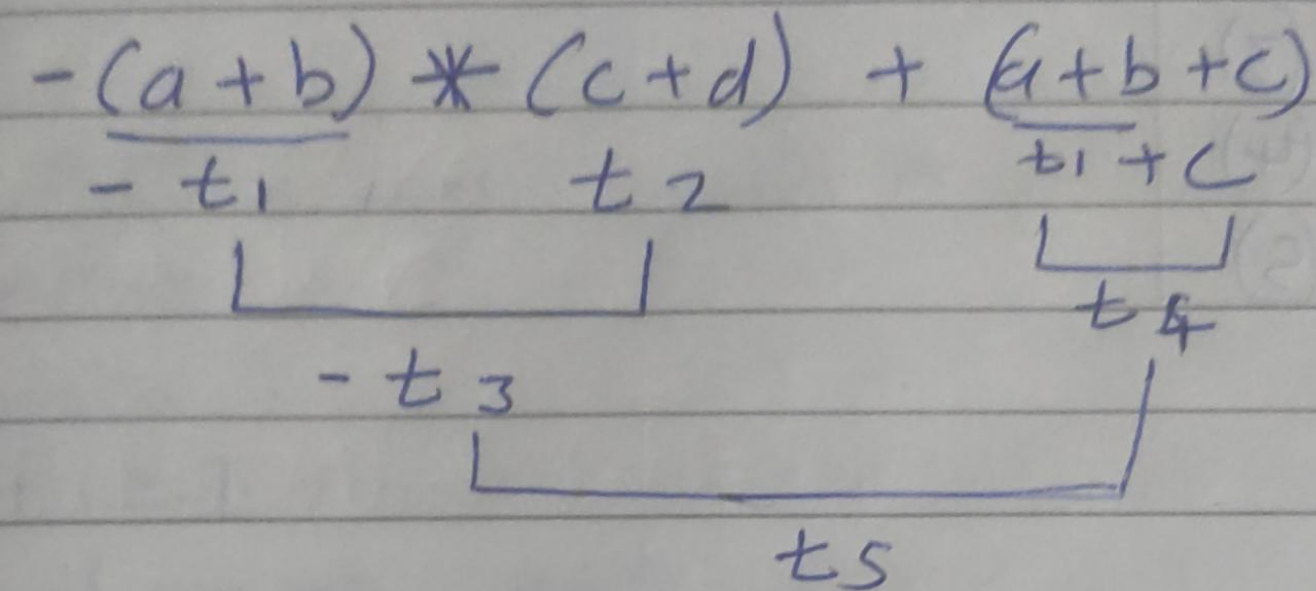 -(a+b) * (c+d) + (a+b+c)
- t1 t2 t1 + c
t4
- t3
t5